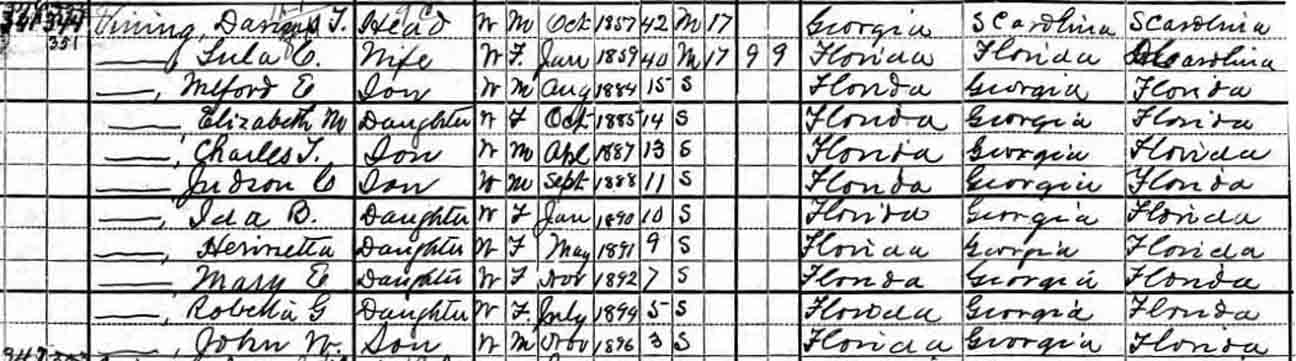 Vining, T. Head W M Oct 1857 42 M 17 Georgia S Carolina S Carolina
351 ——, Lula C. Wife W F. Jan 1859 40 M 17 9 9 Florida Florida Carolina
——, Milford E Son W M Aug 1884 15 S Florida Georgia Florida
——, Elizabeth M Daughter W F Oct 1885 14 S Florida Georgia Florida
——, Charles T. Son W M Apl 1887 13 S Florida Georgia Florida
——, Judson C Son W M Sept 1888 11 S Florida Georgia Florida
——, Ida B. Daughter W F Jan 1890 10 S Florida Georgia Florida
——, Henrietta Daughter W F May 1891 9 S Florida Georgia Florida
——, Mary E Daughter W F Nov 1892 7 S Florida Georgia Florida
——, Robella G Daughter W F. July 1894 5 S Florida Georgia Florida
——, John W. Son W M Nov 1896 3 S Florida Georgia Florida